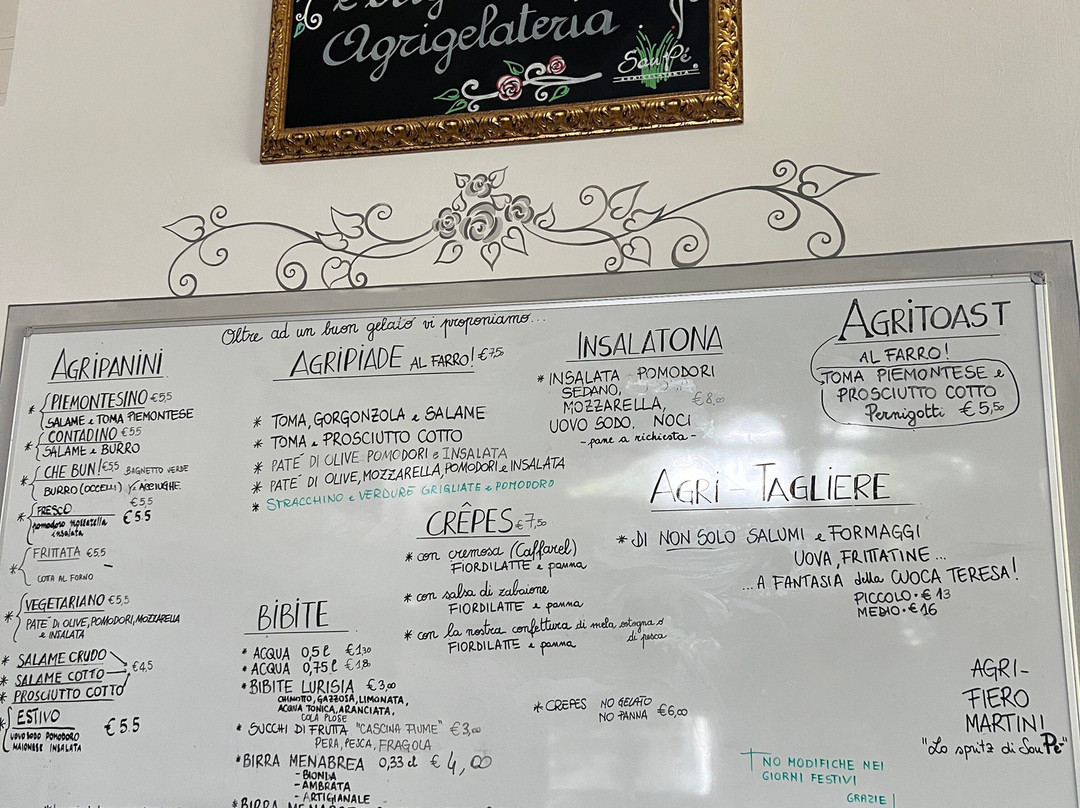 Agrigelateria
San Pé.
AGRIGELATERIA
Oltre ad un buon gelato vi proponiamo...
AGRIPANINI
* PIEMONTESINO €5,5
SALAME e TOMA PIEMONTESE
* CONTADINO €5.5
SALAME e BURRO
* CHE BUN! €5,5 BAGNETTO VERDE
BURRO (OCCELLI) ACCIUGHE
€5.5
* FRESCO €5.5
pomodoro mozzarella
insalata
* FRITTATA €5.5
COTTA AL FORNO
* VEGETARIANO €5,5
PATÉ DI OLIVE, POMODORI, MOZZARELLA
e INSALATA
* SALAME CRUDO
* SALAME COTTO €4,5
* PROSCIUTTO COTTO
* ESTIVO €5.5
UOVO SODO POMODORO
MAIONESE INSALATA
AGRIPIADE AL FARRO! €7,50
* TOMA, GORGONZOLA e SALAME
* TOMA e PROSCIUTTO COTTO
* PATÉ DI OLIVE POMODORI e INSALATA
* PATÉ DI OLIVE, MOZZARELLA, POMODORI e INSALATA
* STRACCHINO e VERDURE GRIGLIATE e POMODORO
CRÊPES €7,50
* con cremosa (Caffarel)
FIORDILATTE e panna
* con salsa di zabaione
FIORDILATTE e panna
* con la nostra confettura di mela cotogna o
di pesca
FIORDILATTE e panna
* CREPES NO GELATO
NO PANNA €6,00
BIBITE
* ACQUA 0,5 l €1,30
* ACQUA 0,75 l €1,80
* BIBITE LURISIA €3,00
CHINOTTO, GAZZOSA, LIMONATA,
ACQUA TONICA, ARANCIATA,
COLA PLOSE
* SUCCHI DI FRUTTA "CASCINA FIUME" €3,00
PERA, PESCA, FRAGOLA
* BIRRA MENABREA 0,33 cl € 4,00
- BIONDA
- AMBRATA
- ARTIGIANALE
INSALATONA
* INSALATA POMODORI
SEDANO,
MOZZARELLA, €8,00
UOVO SODO, NOCI
- pane a richiesta -
AGRITOAST
AL FARRO!
TOMA PIEMONTESE e
PROSCIUTTO COTTO
Pernigotti €5,50
AGRI-TAGLIERE
* DI NON SOLO SALUMI e FORMAGGI
UOVA, FRITTATINE...
...A FANTASIA della CUOCA TERESA!
PICCOLO • € 13
MEDIO • €16
AGRI-
FIERO
MARTINI
"Lo spritz di San Pé"
NO MODIFICHE NEI
GIORNI FESTIVI
GRAZIE!